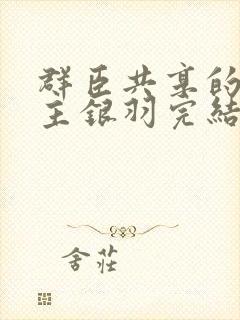 群臣共享的
主銀羽完結
舍莊